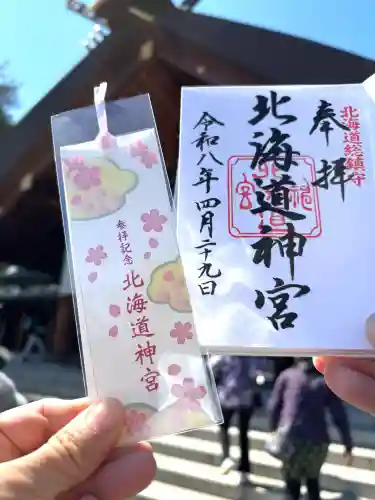 奉拝
北海道総鎮守
北海道神宮
令和八年四月二十九日
参拝記念
北海道神宮